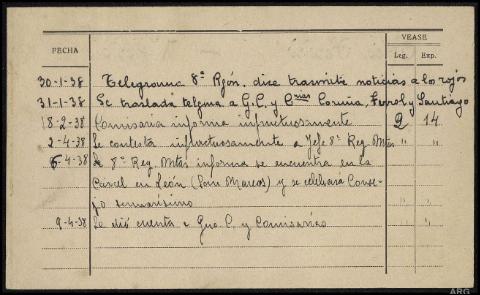 FECHA
VEASE
Leg. Exp.
30-1-38 Telegrama 8ª Rgón. dice trasmite noticias a los rojos
31-1-38 Se traslada telgma a G.C. y Cª Coruña, Ferrol y Santiago
18-2-38 Comisaria informa infructuosamente 2 14
2-4-38 Se contesta infructuosamente a Jefe 8ª Reg. Mtar " "
6-4-38 8ª Reg. Mtar informa se encuentra en la
Carcel en León (San Marcos) y se celebrará Conse-
jo sumarísimo " "
9-4-38 Se dió cuenta a Gua. C. y Comisarías " "
ARG